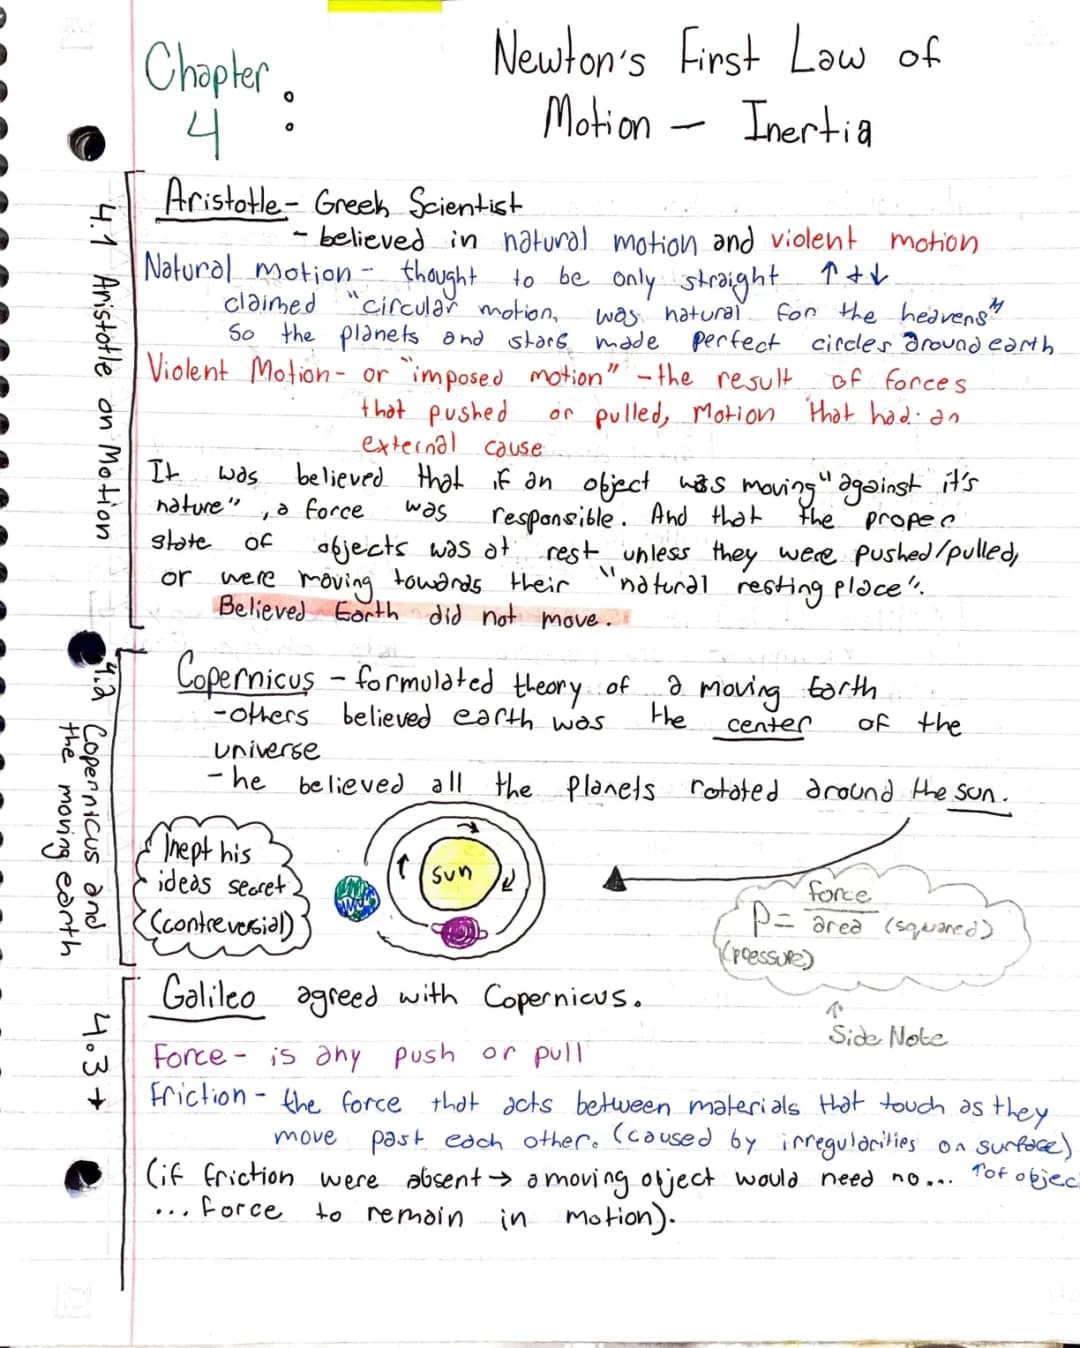 Chapter 4:
Newton's First Law of
Motion - Inertia
4.1 Aristotle on Motion
Aristotle - Greek Scientist
- believed in natural motion and violent motion
Natural motion - thought to be only straight ↑ + ↓
claimed "circular motion, was natural for the heavens"
so the planets and stars made perfect circles around earth
Violent Motion - or "imposed motion" - the result of forces
that pushed or pulled, Motion that had an
external cause
It was believed that if an object was moving "against it's
nature", a force was responsible. And that the proper
state of objects was at rest unless they were pushed/pulled,
or were moving towards their "natural resting place".
Believed Earth did not move.
4.2 Copernicus and
the moving earth
Copernicus - formulated theory of a moving Earth
- others believed earth was the center of the
universe
- he believed all the planets rotated around the sun.
kept his
ideas secret
(contreversial)
sun
P = force / area (squared)
(pressure)
↑
Side Note
4.3 +
Galileo agreed with Copernicus.
Force - is any push or pull
Friction - the force that acts between materials that touch as they
move past each other. (caused by irregularities on surface)
↑ of objec
(if friction were absent → a moving object would need no...
... force to remain in motion).